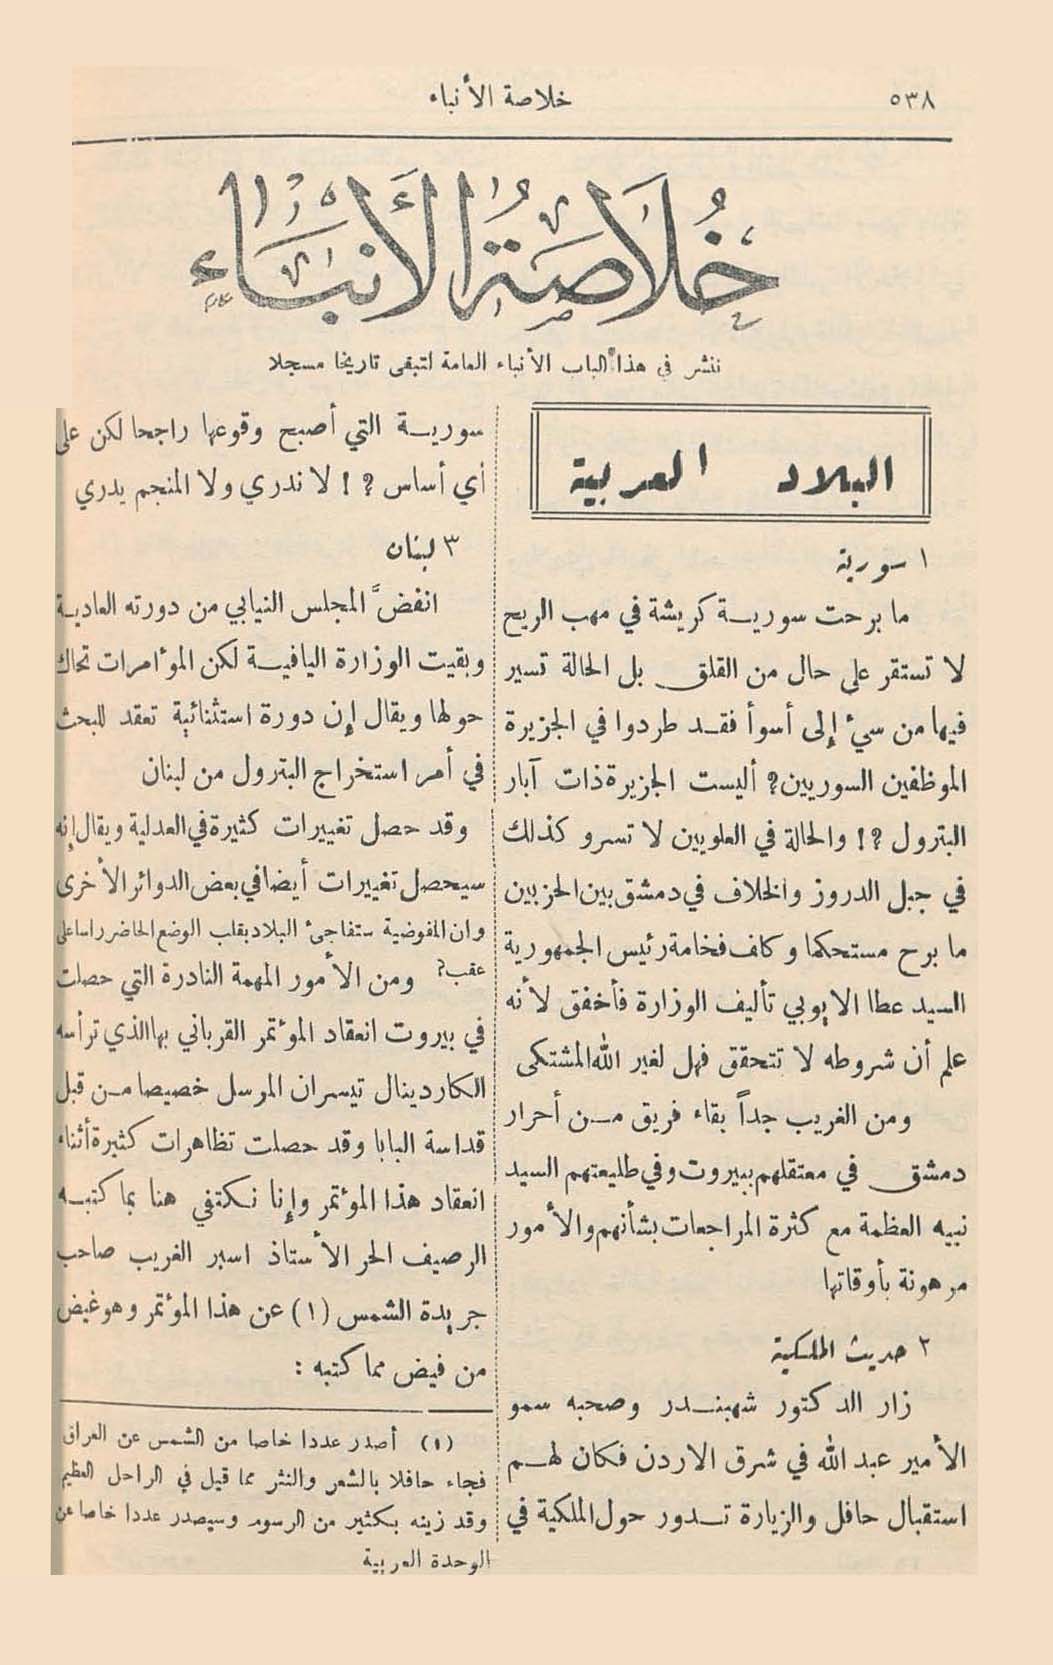 ٥٣٨
خلاصة الأنباء
خُلاصَةُ الأَنبَاء
ننشر في هذا الباب الأنباء العامة لتبقى تاريخا مسجلا
البلاد العربية
١ سورية
ما برحت سوريـة كريشة في مهب الريح
لا تستقر على حال من القلق بل الحالة تسير
فيها من سيء إلى أسوأ فقـد طردوا في الجزيرة
الموظفين السوريين؟ أليست الجزيرة ذات آبار
البترول ؟! والحالة في العلويين لا تسر وكذلك
في جبل الدروز والخلاف في دمشق بين الحزبين
ما برح مستحكما وكلف فخامة رئيس الجمهورية
السيد عطا الايوبي تأليف الوزارة فأخفق لأنه
علم أن شروطه لا تتحقق فهل لغير الله المشتكى
ومن الغريب جداً بقاء فريق مـن أحرار
دمشق في معتقلهم ببيروت وفي طليعتهم السيد
نبيه العظمة مع كثرة المراجعات بشأنهم والأمور
مرهونة بأوقاتها
٢ حديث الملكية
زار الدكتور شهبنـدر وصحبه سمو
الأمير عبد الله في شرق الاردن فكان لهـم
استقبال حافل والزيارة تـدور حول الملكية في
سوريـة التي أصبح وقوعها راجحا لكن على
أي أساس ؟ ! لا ندري ولا المنجم يدري
٣ لبنان
انفضَّ المجلس النيابي من دورته العاديـة
وبقيت الوزارة اليافيـة لكن المؤامرات تحاك
حولها ويقال إن دورة استثنائية تعقد للبحث
في أمر استخراج البترول من لبنان
وقد حصل تغييرات كثيرة في العدلية ويقال إنه
سيحصل تغييرات أيضا في بعض الدوائر الأخرى
وان المفوضية ستفاجئ البلاد بقلب الوضع الحاضر راسا على
عقب؟ ومن الأمور المهمة النادرة التي حصلت
في بيروت انعقاد المؤتمر القرباني بها الذي ترأسه
الكاردينال تيسران المرسل خصيصا مـن قبل
قداسة البابا وقد حصلت تظاهرات كثيرة أثناء
انعقاد هذا المؤتمر وإنا نكتفي هنا بما كتبـه
الرصيف الحر الأستاذ اسبر الغريب صاحب
جريدة الشمس (١) عن هذا المؤتمر وهو غيض
من فيض مما كتبه :
(١) أصدر عددا خاصا من الشمس عن العراق
فجاء حافلا بالشعر والنثر مما قيل في الراحل العظيم
وقد زينه بكثير من الرسوم وسيصدر عددا خاصا عن
الوحدة العربية